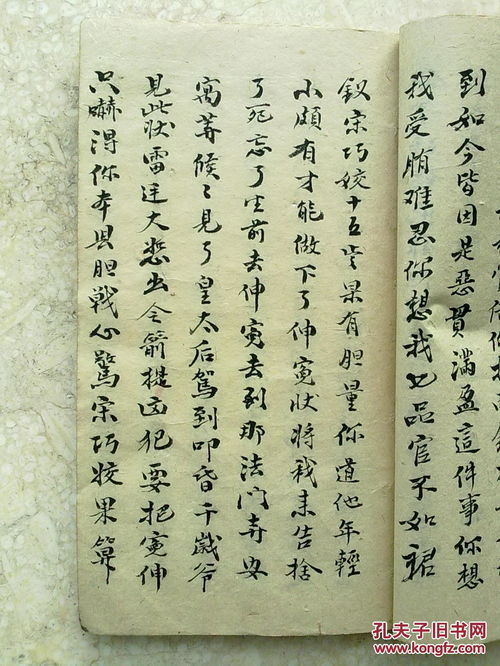 到如今皆因是惡贯滿盈這件事你想
我受賄难忍你想我七品官不如裙
釵宋巧姣十五岁果有胆量你道他年輕
小頗有才能做下了伸寃状将我来告捨
了死忘了生前去伸寃去到那法门寺安
寓等候〻見了皇太后駕到叩昏千歲爷
見此状雷廷大怒出令箭提凶犯要把寃伸
只嚇得你本县胆戰心驚宋巧姣果算
孔夫子旧书网
www.kongfz.com